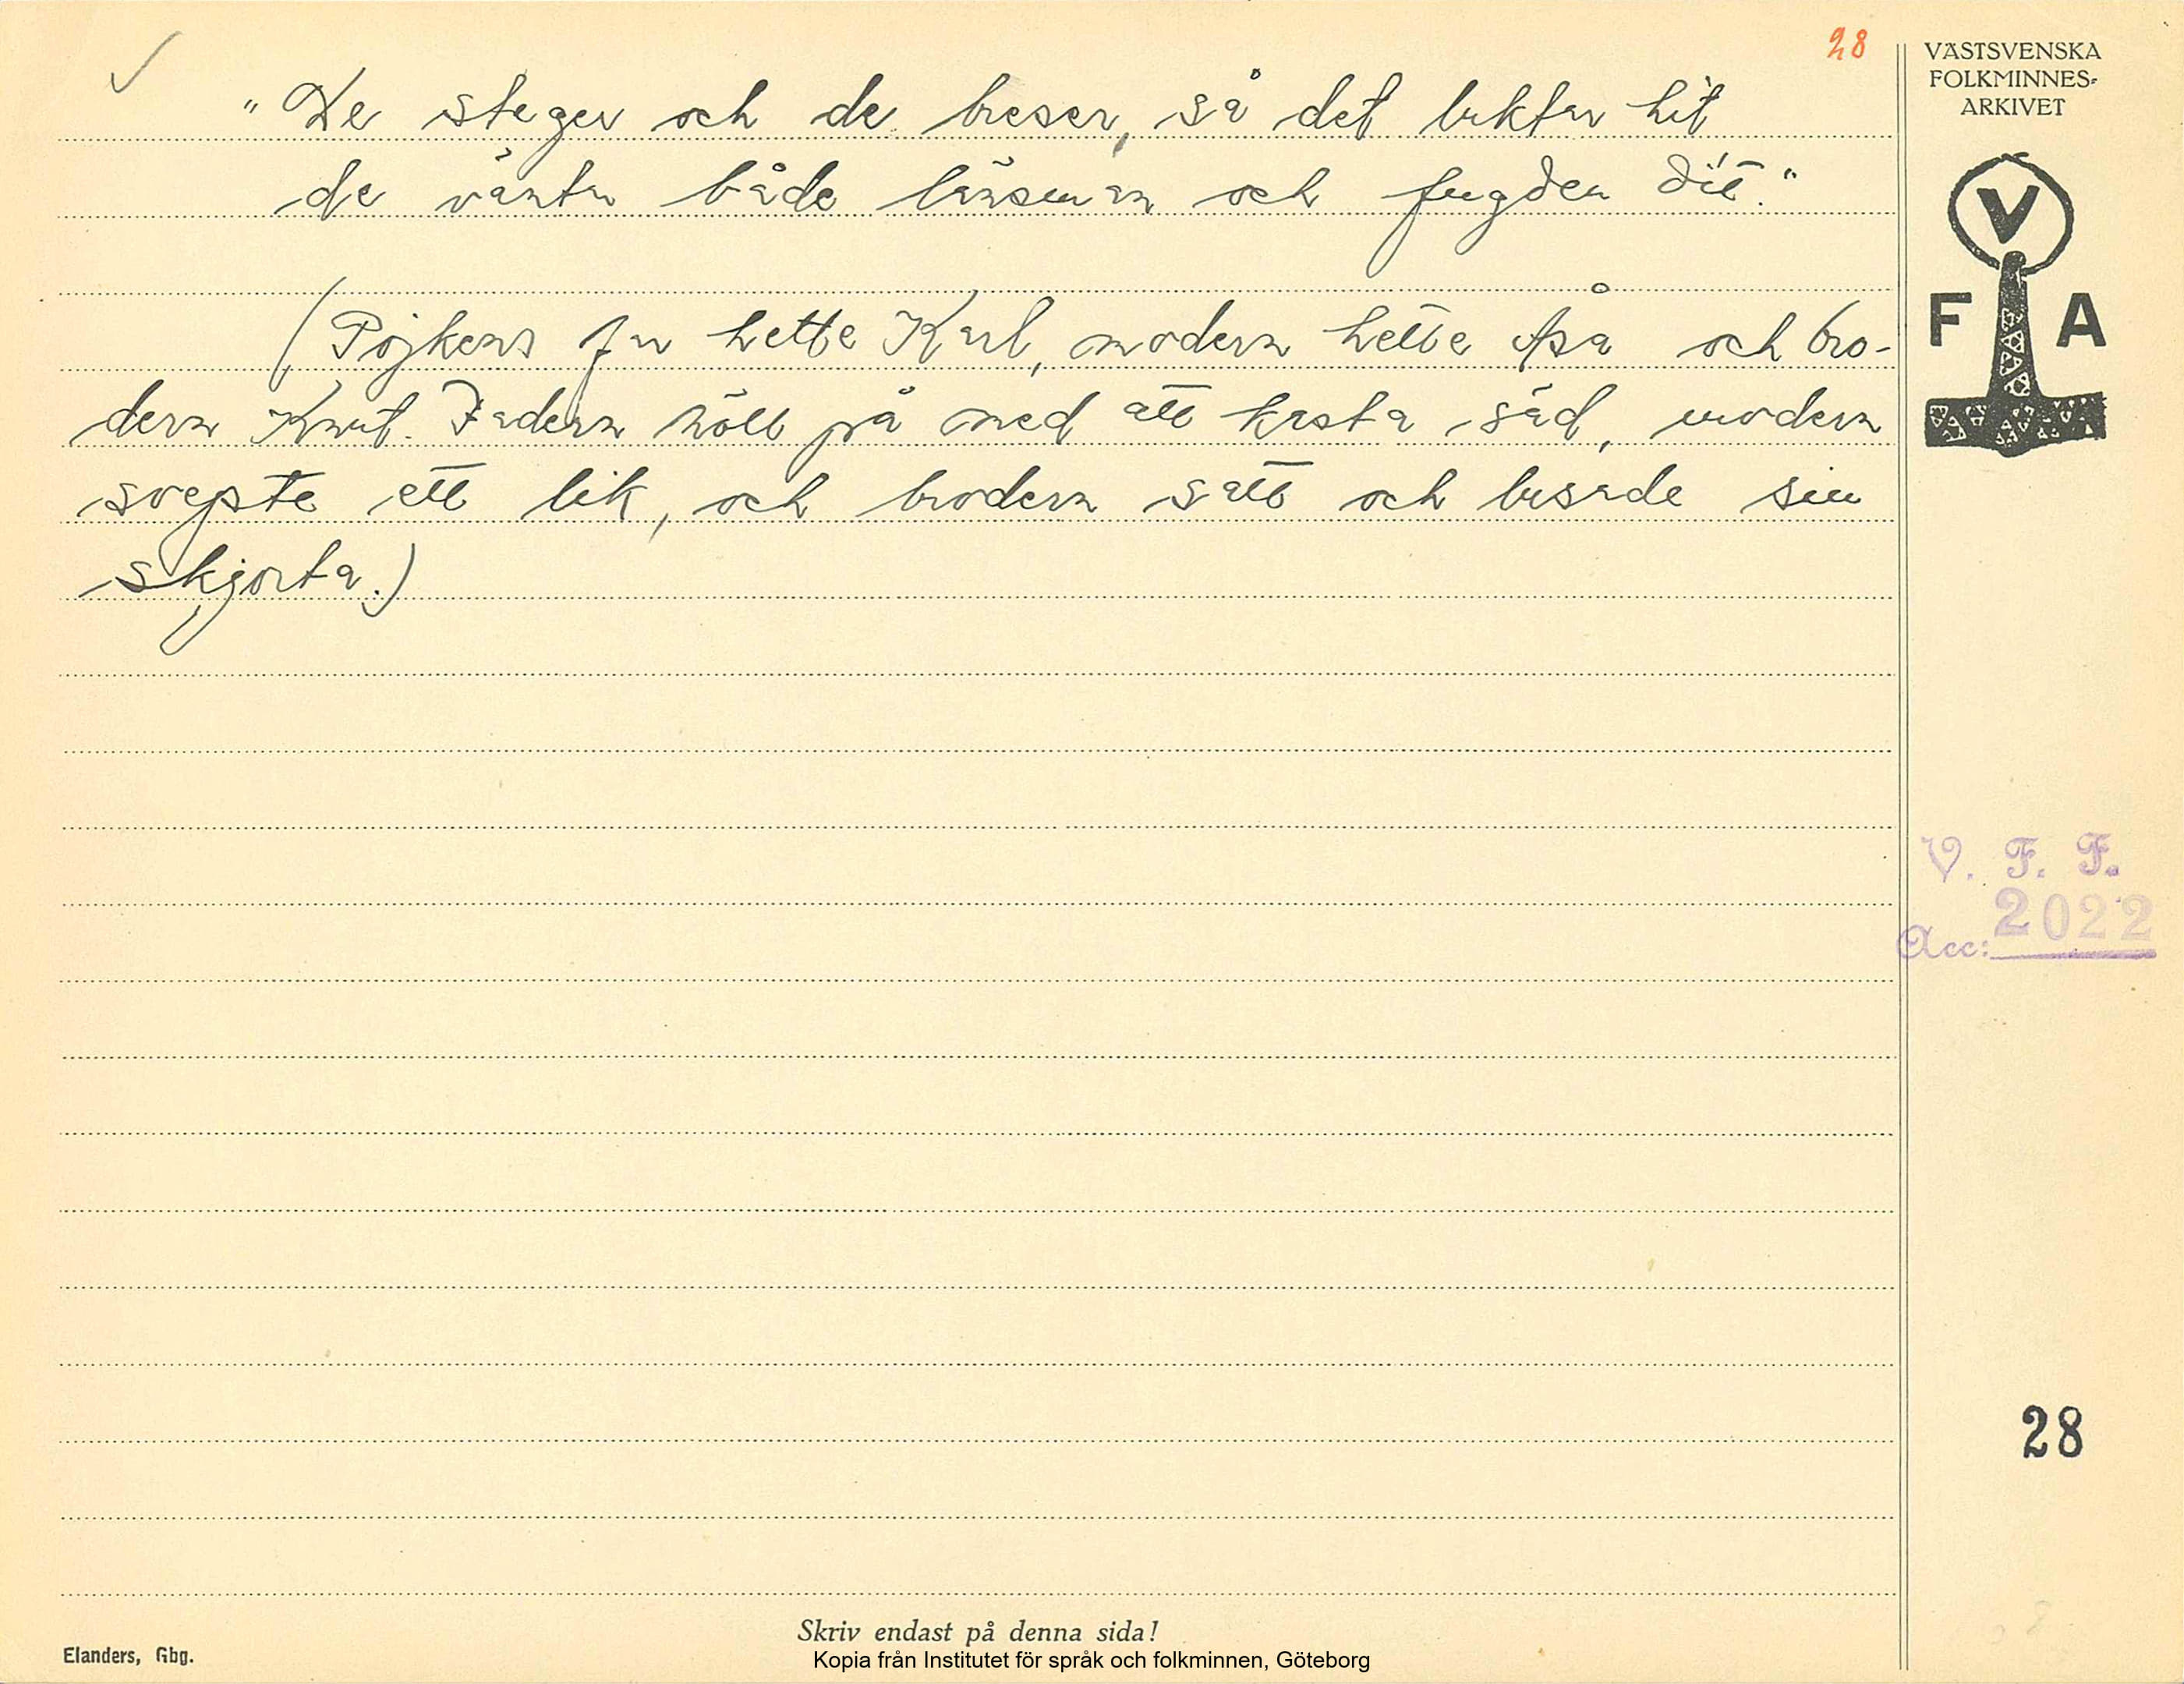 28
"De steger och de breser, så det luktar hit
de väntar både länsman och fugden dit."
(Pojkens far hette Karl, modern hette Åsa och bro-
dern Knut. Fadern höll på med att kasta säd, modern
svepte ett lik, och brodern satt och lusade sin
skjorta.)
VÄSTSVENSKA
FOLKMINNES-
ARKIVET
V
F A
V. F. F.
Acc: 2022
28
Skriv endast på denna sida!
Elanders, Gbg.
Kopia från Institutet för språk och folkminnen, Göteborg